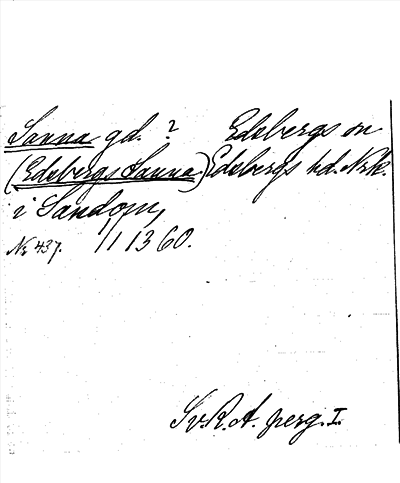 Sanna gd. ? Edsbergs sn
(Edsbergs Sanna) Edsbergs hd. Nrk.
i Sandom,
№ 437. 1/1 1360.
Sv.R.A. perg. I.